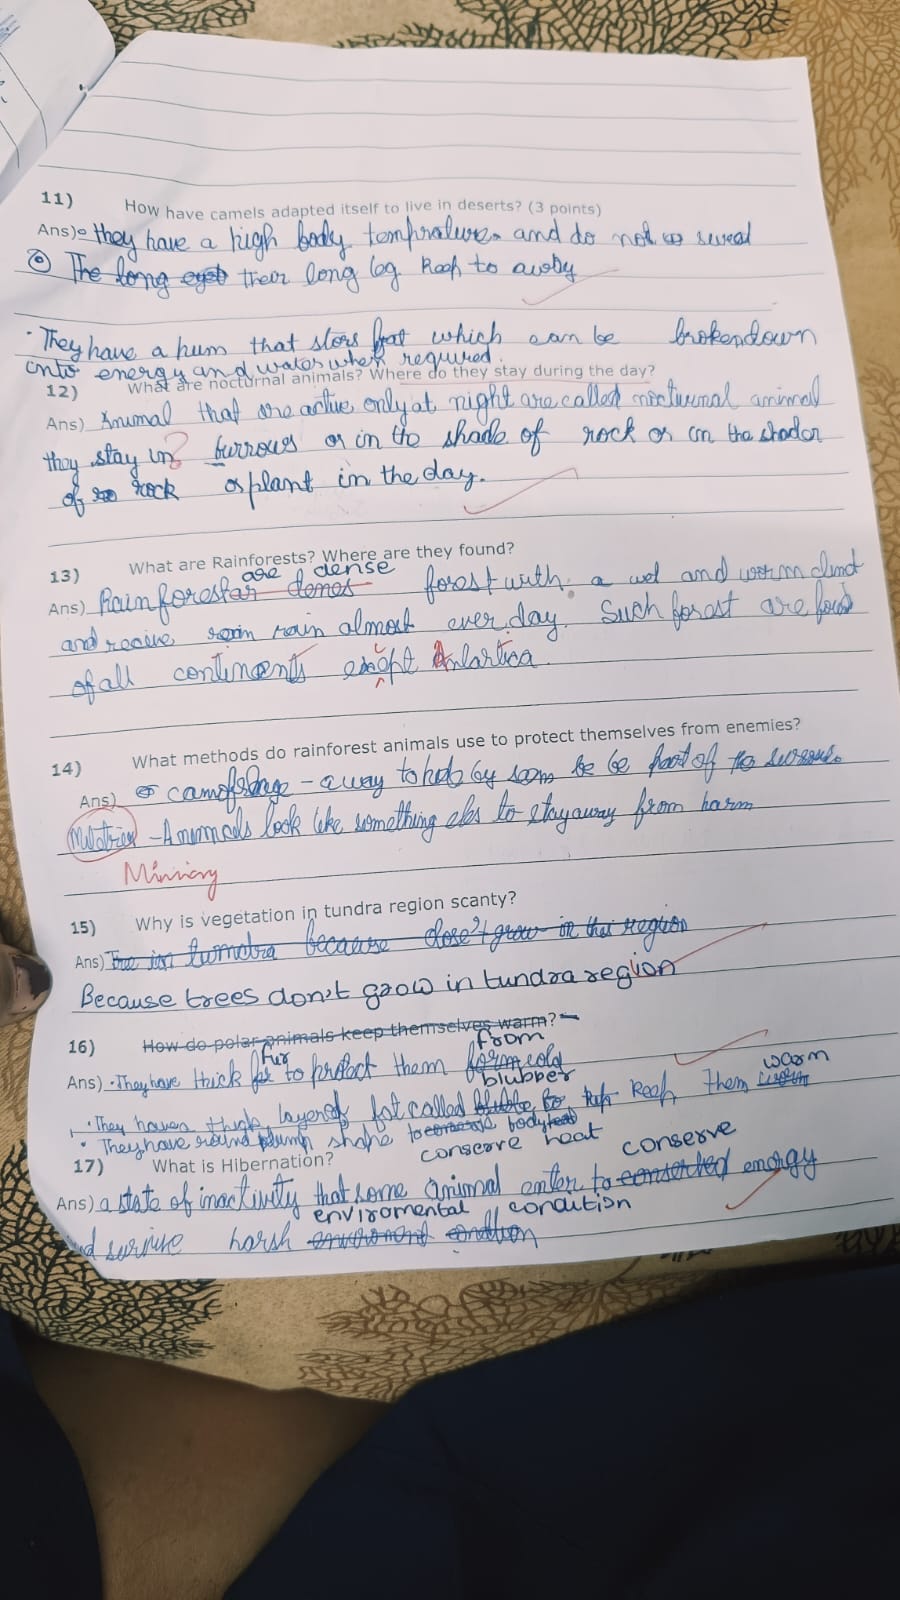 11) How have camels adapted itself to live in deserts? (3 points)
Ans) they have a high body temprature and do not sweat
The long their long leg Keep to away
They have a hum that stors fat which can be brokendown
into energy and water when required.
12) What are nocturnal animals? Where do they stay during the day?
Ans) Animal that are active only at night are called nocturnal animal
they stay in? burrows or in the shade of rock or in the shador
of rock or plant in the day.
13) What are Rainforests? Where are they found?
are dense
Ans) Rainforest ar denes forest with a wet and worm climat
and recive rain almost ever day. Such forest are foud
of all continents exept Antartica
14) What methods do rainforest animals use to protect themselves from enemies?
Ans) camoflage - a way to hide by seem be be part of
- Anumals look like something els to stay away from harm
Mimicry
15) Why is vegetation in tundra region scanty?
Ans) tumdra because dose't grow in the region
Because trees don't grow in tundra region
16) How do polar animals keep themselves warm?
fur from
Ans) They have thick to protect them form cold
blubber warm
They have thick layer of fat called Keep them
They have round plump shape to body heat
conserve heat
17) What is Hibernation?
conserve
Ans) a state of inactivity that some animal enter to energy
enviromental condition
survive harsh